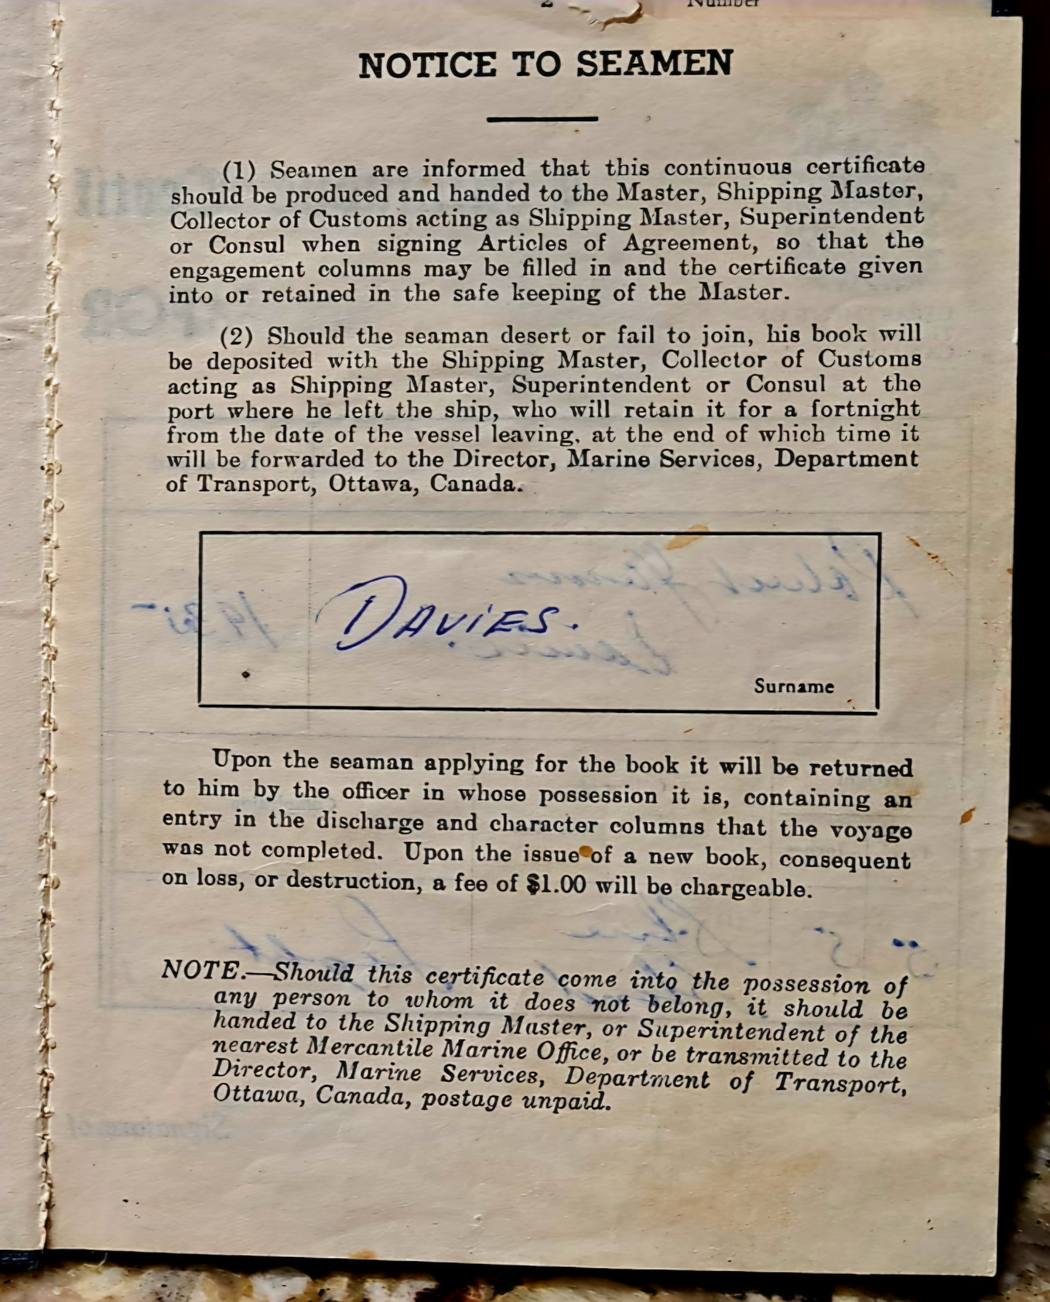 2 Number
NOTICE TO SEAMEN
(1) Seamen are informed that this continuous certificate
should be produced and handed to the Master, Shipping Master,
Collector of Customs acting as Shipping Master, Superintendent
or Consul when signing Articles of Agreement, so that the
engagement columns may be filled in and the certificate given
into or retained in the safe keeping of the Master.
(2) Should the seaman desert or fail to join, his book will
be deposited with the Shipping Master, Collector of Customs
acting as Shipping Master, Superintendent or Consul at the
port where he left the ship, who will retain it for a fortnight
from the date of the vessel leaving, at the end of which time it
will be forwarded to the Director, Marine Services, Department
of Transport, Ottawa, Canada.
DAViES.
Surname
Upon the seaman applying for the book it will be returned
to him by the officer in whose possession it is, containing an
entry in the discharge and character columns that the voyage
was not completed. Upon the issue of a new book, consequent
on loss, or destruction, a fee of $1.00 will be chargeable.
NOTE.—Should this certificate come into the possession of
any person to whom it does not belong, it should be
handed to the Shipping Master, or Superintendent of the
nearest Mercantile Marine Office, or be transmitted to the
Director, Marine Services, Department of Transport,
Ottawa, Canada, postage unpaid.